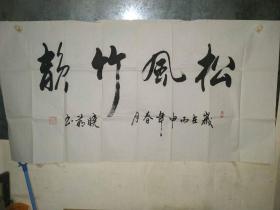 松風竹韵
歲在丙申年春月 曉莉書